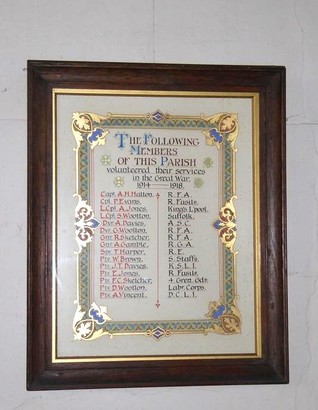 THE FOLLOWING
MEMBERS
OF THIS PARISH
volunteered their services
in the Great War.
1914 — 1918.
Capt. A.H. Hatton. R.F.A.
Cpl. P. Evans. R. Fusils.
L.Cpl. A. Jones. King's L'pool.
L.Cpl. S. Wootton. Suffolk.
Dvr. A. Davies. A.S.C.
Dvr. G. Wootton. R.F.A.
Gnr. R. Sketcher. R.F.A.
Gnr. A. Gamble. R.G.A.
Spr. T. Harper. R.E.
Pte. W. Brown. S. Staffs.
Pte. J.T. Davies. K.S.L.I.
Pte. E. Jones. R. Fusils.
Pte. F.C. Sketcher. 4 Gren. Gds.
Pte. D. Wootton. Labr. Corps.
Pte. A. Vincent. D.C.L.I.